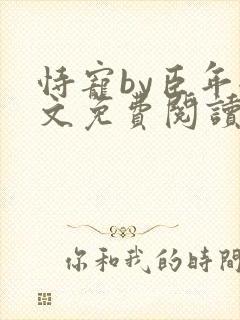 恃寵by臣年
文免費閱讀
你和我的時間